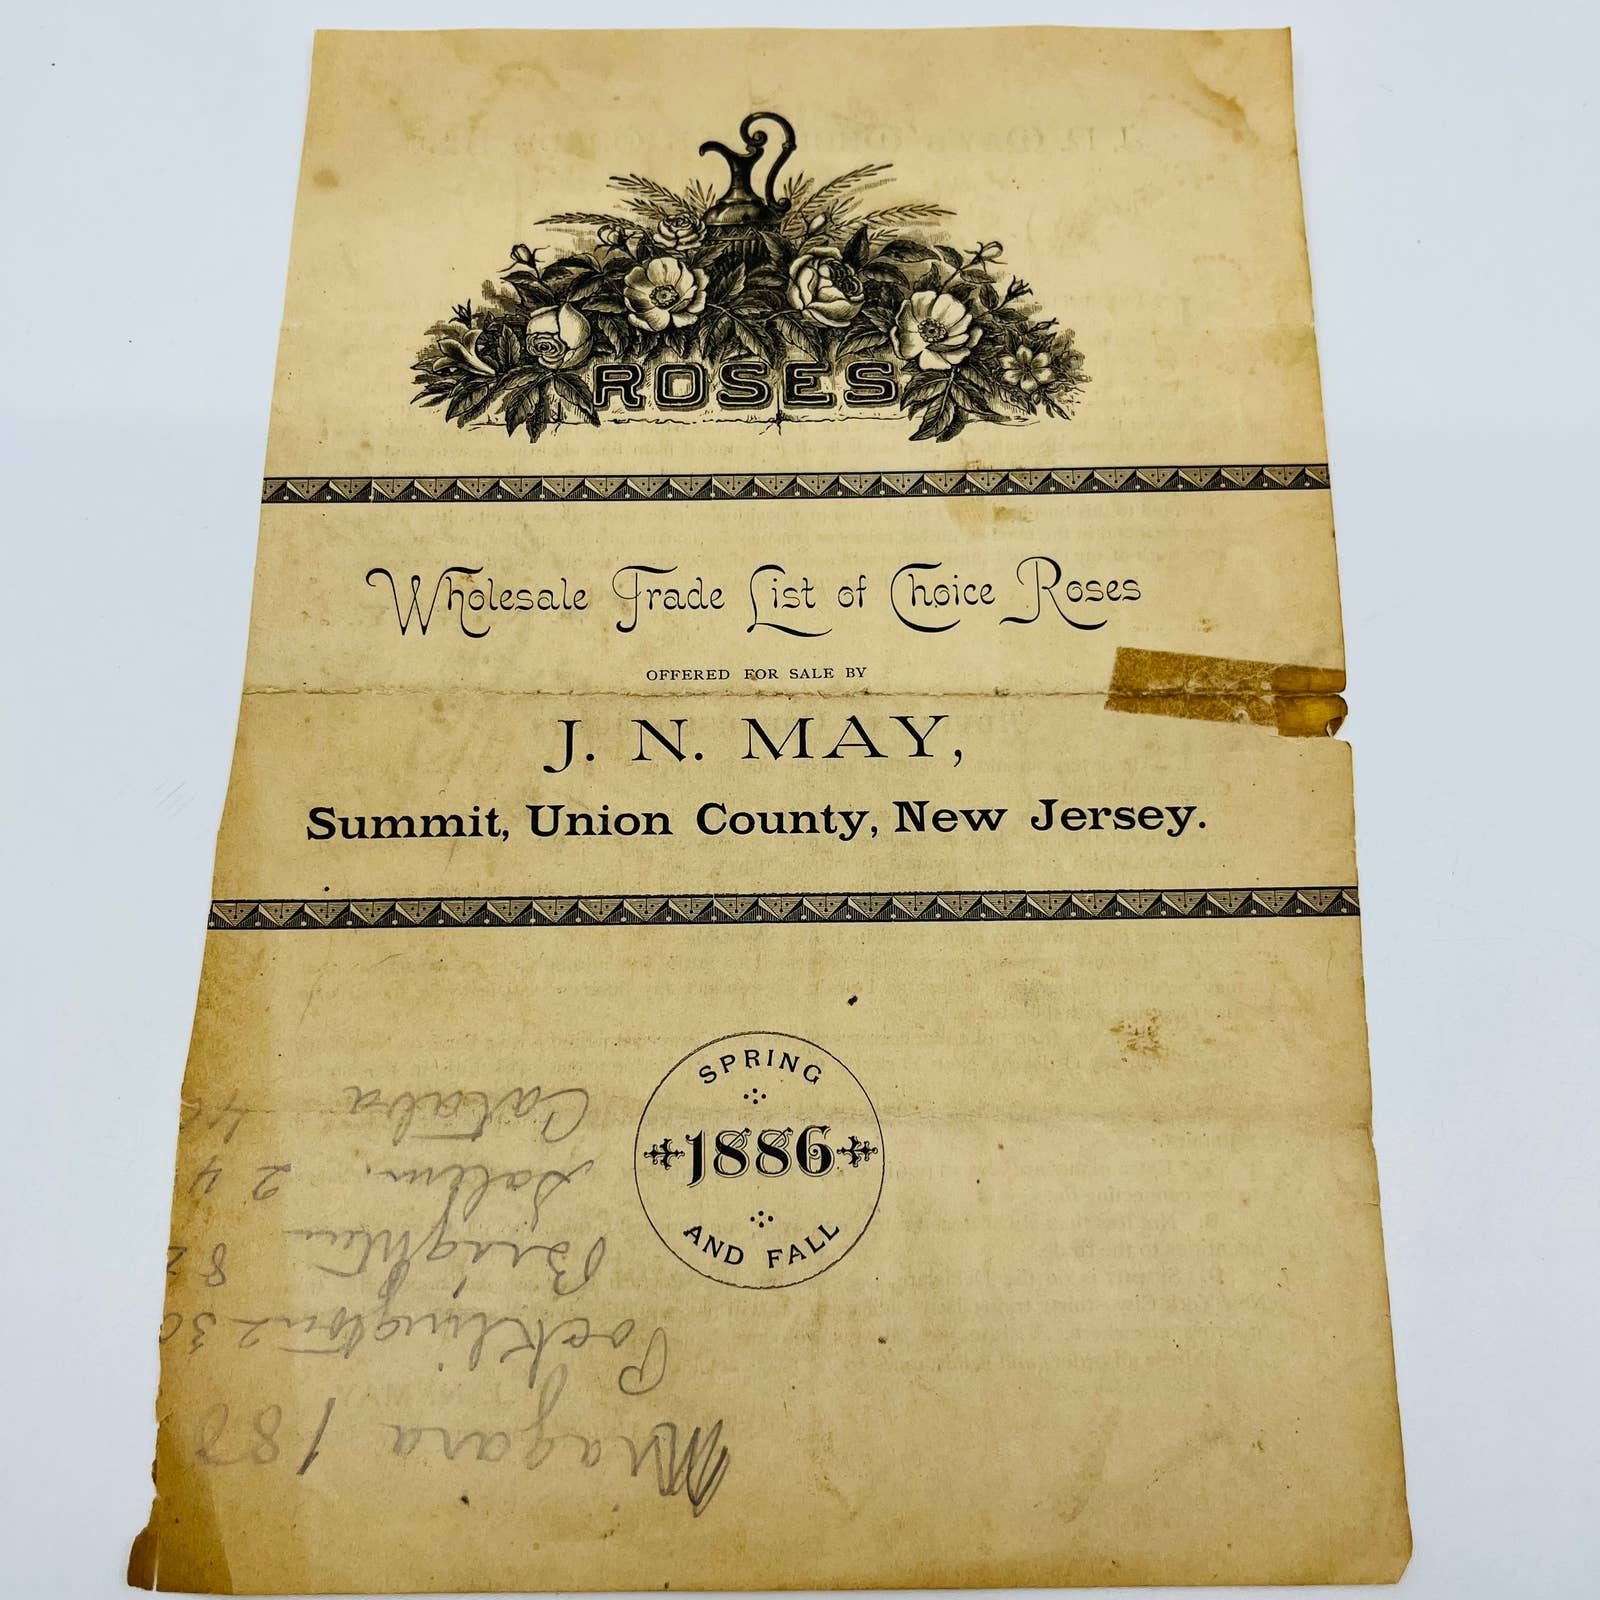 ROSES
Wholesale Trade List of Choice Roses
OFFERED FOR SALE BY
J. N. MAY,
Summit, Union County, New Jersey.
SPRING
1886
AND FALL
Niagara 188
Pocklington 230
Brighton 82
Salem. 24
Cataba